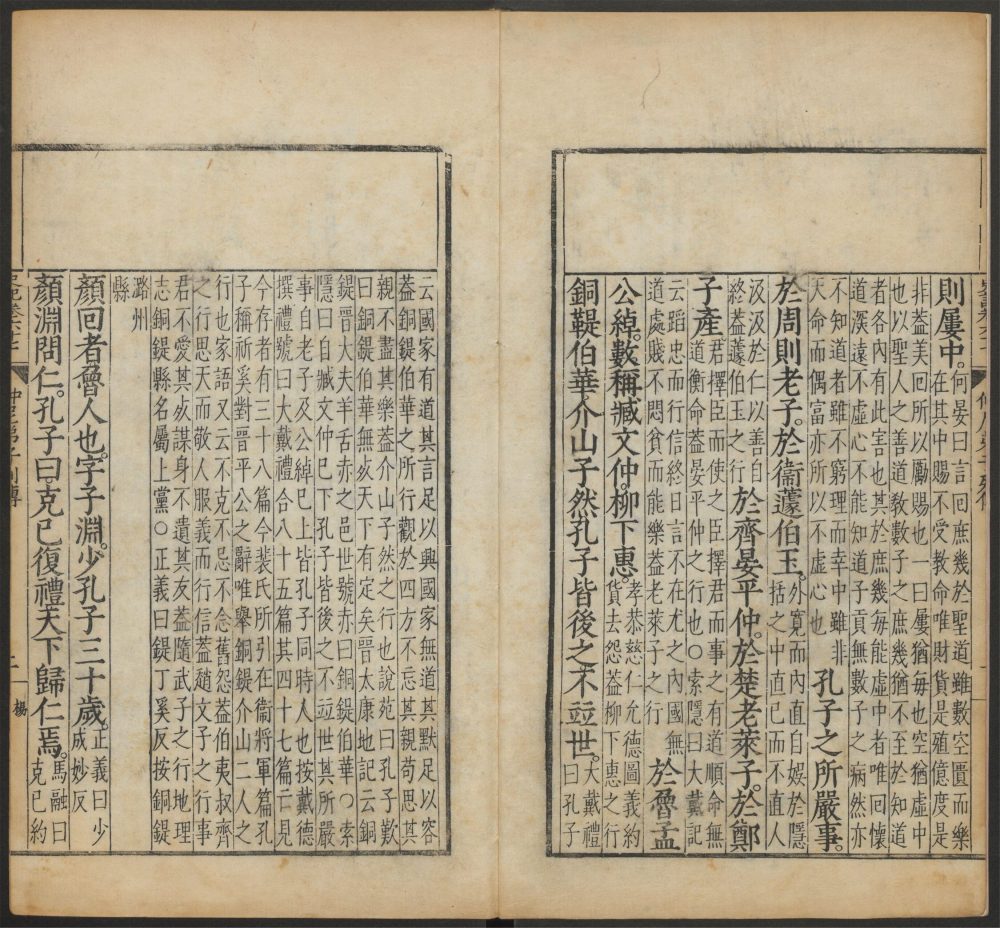 則屢中。何晏曰言回庶幾於聖道雖數空匱而樂
在其中賜不受教命唯財貨是殖億度是
非蓋美回所以勵賜也一曰屢猶每也空猶虛中
也以聖人之善道教數子之庶幾猶不至於知道
者各內有此害也其於庶幾每能虛中者唯回懷
道深遠不虛心不能知道子貢無數子之病然亦
不知道者雖不窮理而幸中雖非
天命而偶富亦所以不虛心也
孔子之所嚴事。
於周則老子。於衞蘧伯玉。外寬而內直自娛於隱
括之中直己而不直人
汲汲於仁以善自
終蓋蘧伯玉之行
於齊晏平仲。於楚老萊子。於鄭
子產。君擇臣而使之臣擇君而事之有道順命無
道衡命蓋晏平仲之行也○索隱曰大戴記
云蹈忠而行信終日言不在尤之內國無
道處賤不悶貧而能樂蓋老萊子之行
於魯孟
公綽。數稱臧文仲。柳下惠。孝恭慈仁允德圖義約
貨去怨蓋柳下惠之行
銅鞮伯華介山子然孔子皆後之不竝世。大戴禮
曰孔子
云國家有道其言足以興國家無道其默足以容
蓋銅鞮伯華之所行觀於四方不忘其親苟思其
親不盡其樂蓋介山子然之行也說苑曰孔子歎
曰銅鞮伯華無死天下有定矣晉太康地記云銅
鞮晉大夫羊舌赤之邑世號赤曰銅鞮伯華○索
隱曰自臧文仲已下孔子皆後之不竝世其所嚴
事自老子及公綽已上皆孔子同時人也按戴德
撰禮號曰大戴禮合八十五篇其四十七篇亡見
今存者有三十八篇今裴氏所引在衞將軍篇孔
子稱祈奚對晉平公之辭唯舉銅鞮介山二人之
行也家語又云不克不忌不念舊怨蓋伯夷叔齊
之行思天而敬人服義而行信蓋趙文子之行事
君不愛其死謀身不遺其友蓋隨武子之行地理
志銅鞮縣名屬上黨○正義曰鞮丁奚反按銅鞮
潞州
縣
顏回者魯人也。字子淵。少孔子三十歲。正義曰少
成妙反
顏淵問仁。孔子曰。克己復禮天下歸仁焉。馬融曰
克己約
楊